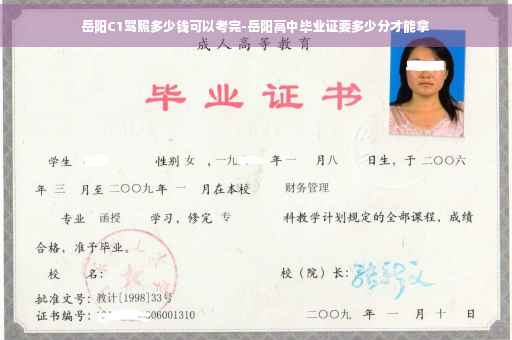 岳阳C1驾照多少钱可以考完-岳阳高中毕业证要多少分才能拿
成人高等教育
毕业证书
学生 性别 女 ，一九 年 一 月八 日生，于 二〇〇六
年 三 月至 二〇〇九 年 一 月在本校 财务管理
专业 函授 学习，修完 专 科教学计划规定的全部课程，成绩
合格，准予毕业。
校 名： 校（院）长：
批准文号：教计[1998]33号
证书编号： 06001310 二〇〇九 年 一 月 十 日